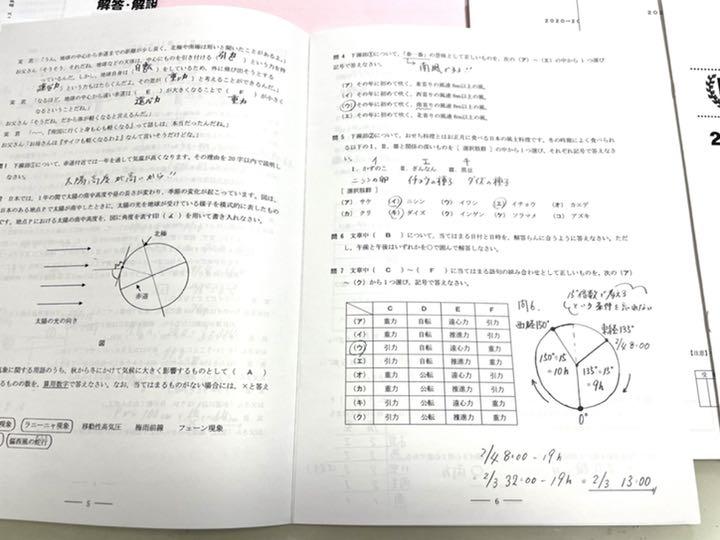 解答・解説
2020-20
実 君「うん。地球の中心から赤道までの距離が少し長く、北極や南極は短いと聞いたことがあるよ。」
引力
自転
をしているため、外に飛び出そうとする
遠心力
重力
実 君「なるほど。地球の中心から遠い赤道は( E )が大きくなることで( F )が小さく
なるということだね。」
遠心力
重力
お父さん「そうだね。だから体が軽くなると言えるんだ。」
お父さん「お母さんは『サイフも軽くなるわよ』なんて言いそうだけどな。」
において、赤道付近では一年を通して気温が高くなります。その理由を20字以内で説明し
なさい。
太陽高度が高いから!!
日本では、1年の間で太陽の南中高度や昼の長さが変わり、季節の変化が起こっています。図は、
日本のある地点Pで太陽が南中したときに、太陽の光を地球が受けている様子を模式的に表したもので
す。地点Pにおける太陽の南中高度を、図に角度を表す印(∠)を用いて書き入れなさい。
北極
赤道
太陽の光の向き
図
象に関する用語のうち、秋から冬にかけて気候に大きく影響するものとして( A )
るものの数を、算用数字で答えなさい。なお、当てはまるものがない場合には、×と答え
現象 ラニーニャ現象 移動性高気圧 梅雨前線 フェーン現象
偏西風の蛇行
― 5 ―
問4 下線部①について、「春一番」の意味として正しいものを、次の(ア)~(エ)の中から1つ選び
記号で答えなさい。
南風がよる!!
(ア)その年に初めて吹く、東寄りの風速8m以上の風。
(イ)その年に初めて吹く、西寄りの風速8m以上の風。
(ウ)その年に初めて吹く、南寄りの風速8m以上の風。
(エ)その年に初めて吹く、北寄りの風速8m以上の風。
問5 下線部②について、おせち料理とはお正月に食べる日本の風土料理です。冬の時期によく食べられ
る以下のⅠ、Ⅱ、Ⅲと関係の深いものを[選択肢群]の中から1つ選び、それぞれ記号で答えなさい。
イ エ キ
Ⅰ.かずのこ Ⅱ.ぎんなん Ⅲ.豆
ニシンの卵 イチョウの種子 ダイズの種子
[選択肢群]
(ア)サケ (イ)ニシン (ウ)イワシ (エ)イチョウ (オ)カエデ
(カ)クリ (キ)ダイズ (ク)インゲン (ケ)ソラマメ (コ)アズキ
問6 文章中( B )について、当てはまる日付と日時を、解答らんに合うように答えなさい。ただ
し、午前と午後はいずれかを○で囲んで解答しなさい。
問7 文章中( C )~( F )に当てはまる語句の組み合わせとして正しいものを、次の(ア)
~(ク)から1つ選び、記号で答えなさい。
C D E F
(ア) 重力 自転 遠心力 引力
(イ) 重力 自転 推進力 引力
(ウ) 引力 自転 遠心力 重力
(エ) 引力 自転 推進力 重力
(オ) 重力 公転 遠心力 引力
(カ) 重力 公転 推進力 引力
(キ) 引力 公転 遠心力 重力
(ク) 引力 公転 推進力 重力
問6.
15°倍数で考える
西経150°
東経135°
2/4 8:00
150°÷15
=10h
135°÷15°
=9h
0°
2/4 8:00 - 19h
=2/3 32:00 - 19h = 2/3 13:00
― 6 ―